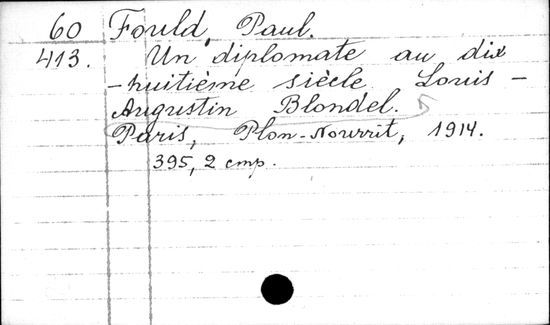 60 Fould, Paul.
413. Un diplomate au dix
-huitième siècle Louis -
Augustin Blondel.
Paris, Plon-Nourrit, 1914.
395, 2 стр.